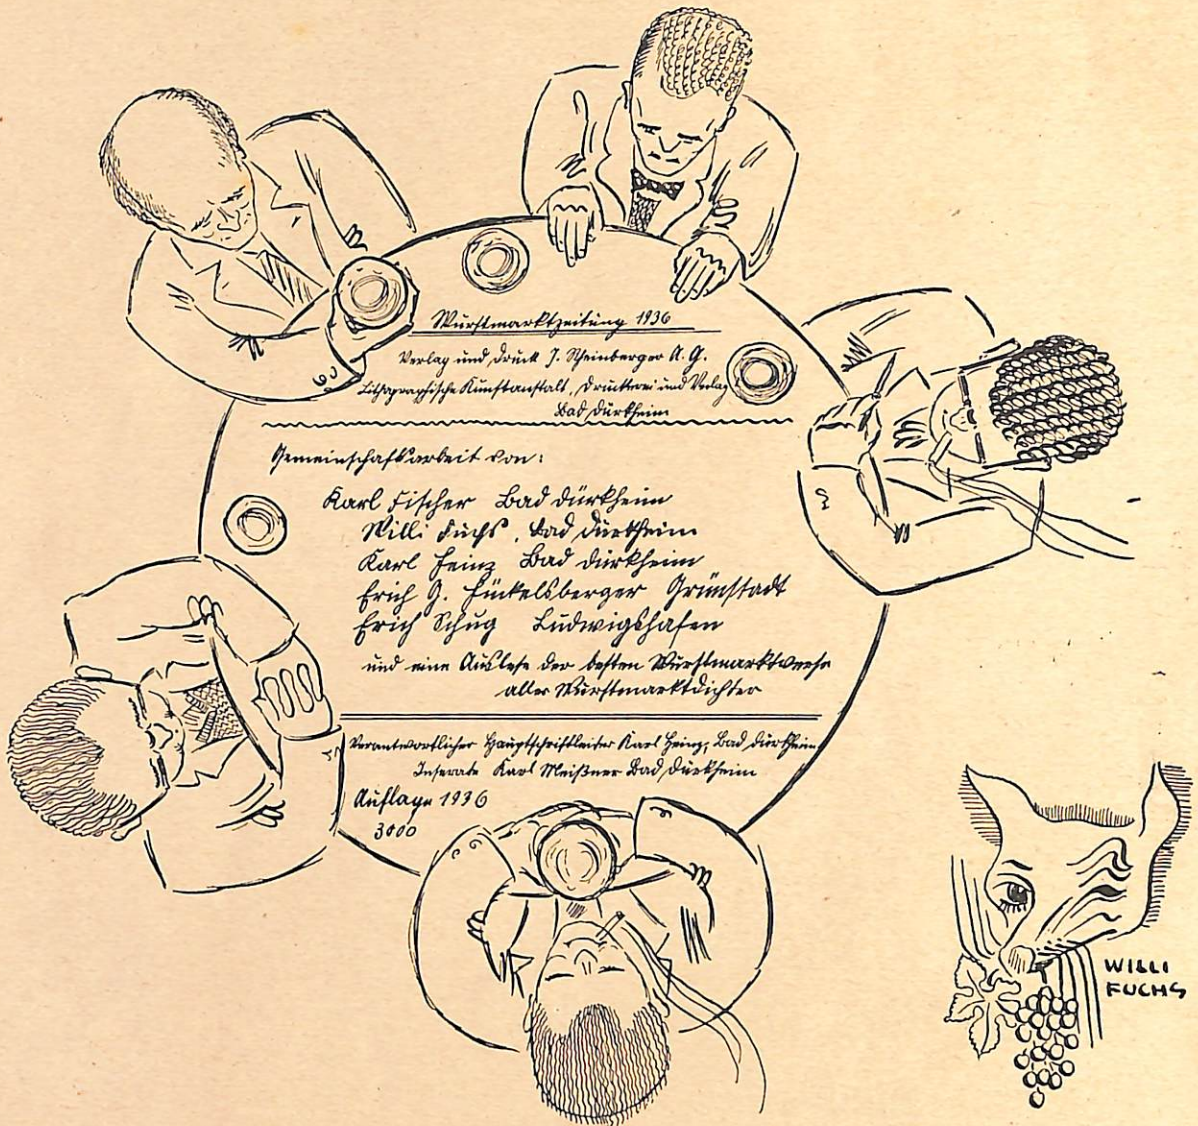 Wurstmarktzeitung 1936
Verlag und Druck J. Rheinberger A. G.
Lithographische Kunstanstalt, Druckerei und Verlag
Bad Dürkheim
Gemeinschaftsarbeit von:
Karl Fischer Bad Dürkheim
Willi Fuchs, Bad Dürkheim
Karl Heinz Bad Dürkheim
Erich G. Finkelsberger Grünstadt
Erich Schug Ludwigshafen
und eine Auslese der besten Wurstmarktverse
aller Wurstmarktdichter
Verantwortlicher Hauptschriftleiter Karl Heinz, Bad Dürkheim
Inserate Karl Meißner Bad Dürkheim
Auflage 1936
3000
WILLI
FUCHS